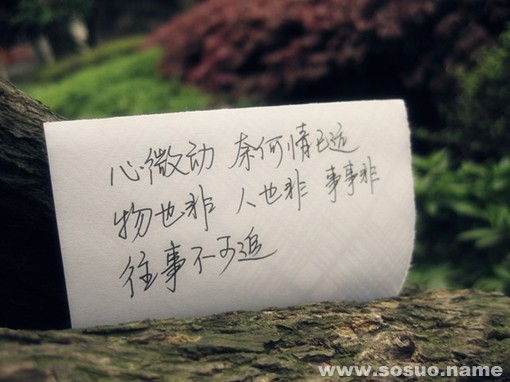 心微动 奈何情已远
物也非 人也非 事事非
往事不可追
www.sosuo.name